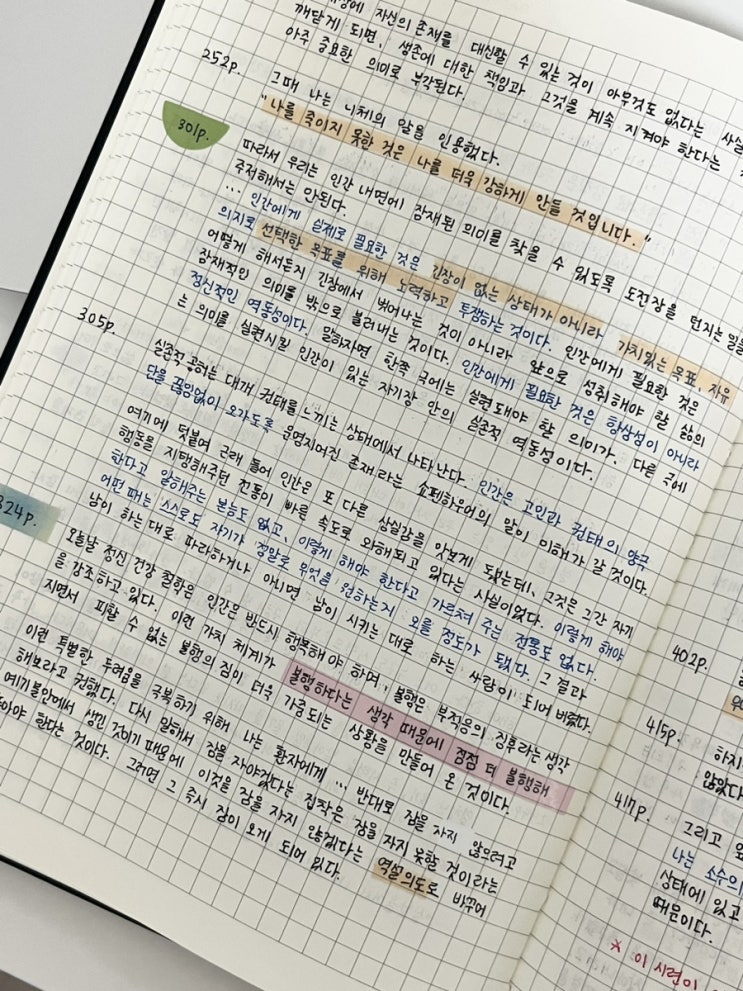 자신의 존재를 대신할 수 있는 것이 아무것도 없다는 사실
깨닫게 되면, 생존에 대한 책임과 그것을 계속 지켜야 한다는
아주 중요한 의미로 부각된다.
252p. 그때 나는 니체의 말을 인용했다.
"나를 죽이지 못한 것은 나를 더욱 강하게 만들 것입니다."
301p. 따라서 우리는 인간 내면에 잠재된 의미를 찾을 수 있도록 도전장을 던지는 일을
주저해서는 안된다.
... 인간에게 실제로 필요한 것은 긴장이 없는 상태가 아니라 가치있는 목표, 자유
의지로 선택한 목표를 위해 노력하고 투쟁하는 것이다. 인간에게 필요한 것은
어떻게 해서든지 긴장에서 벗어나는 것이 아니라 앞으로 성취해야 할 삶의
잠재적인 의미를 밖으로 불러내는 것이다. 인간에게 필요한 것은 항상성이 아니라
정신적인 역동성이다. 말하자면 한쪽 극에는 실현돼야 할 의미가, 다른 극에
는 의미를 실현시킬 인간이 있는 자기장 안의 실존적 역동성이다.
305p. 실존적 공허는 대개 권태를 느끼는 상태에서 나타난다. 인간은 고민과 권태의 양극
단을 끊임없이 오가도록 운명지어진 존재라는 쇼펜하우어의 말이 이해가 갈 것이다.
여기에 덧붙여 근래 들어 인간은 또 다른 상실감을 맛보게 됐는데, 그것은 그간 자기
행동을 지탱해주던 전통이 빠른 속도로 와해되고 있다는 사실이었다. 이렇게 해야
한다고 말해주는 본능도 없고, 이렇게 해야 한다고 가르쳐 주는 전통도 없다.
어떤 때는 스스로도 자기가 정말로 무엇을 원하는지 모를 정도가 됐다. 그 결과
남이 하는대로 따라하거나 아니면 남이 시키는 대로 하는 사람이 되어 버렸다.
324p. 오늘날 정신 건강 철학은 인간은 반드시 행복해야 하며, 불행은 부적응의 징후라는 생각
을 강조하고 있다. 이런 가치 체계가 불행하다는 생각 때문에 점점 더 불행해
지면서 피할 수 없는 불행의 짐이 더욱 가중되는 상황을 만들어 온 것이다.
이런 특별한 두려움을 극복하기 위해 나는 환자에게 ... 반대로 잠을 자지 않으려고
해보라고 권했다. 다시 말해서 잠을 자야겠다는 집착은 잠을 자지 못할 것이라는
예기불안에서 생긴 것이기 때문에 이것을 잠을 자지 않겠다는 역설의도로 바꾸어
야 한다는 것이다. 그러면 그 즉시 잠이 오게 되어 있다.
402p.
415p. 하지
않았다
417p. 그리고
나는 소수의
상태에 있고
때문이다.
* 이 시련이